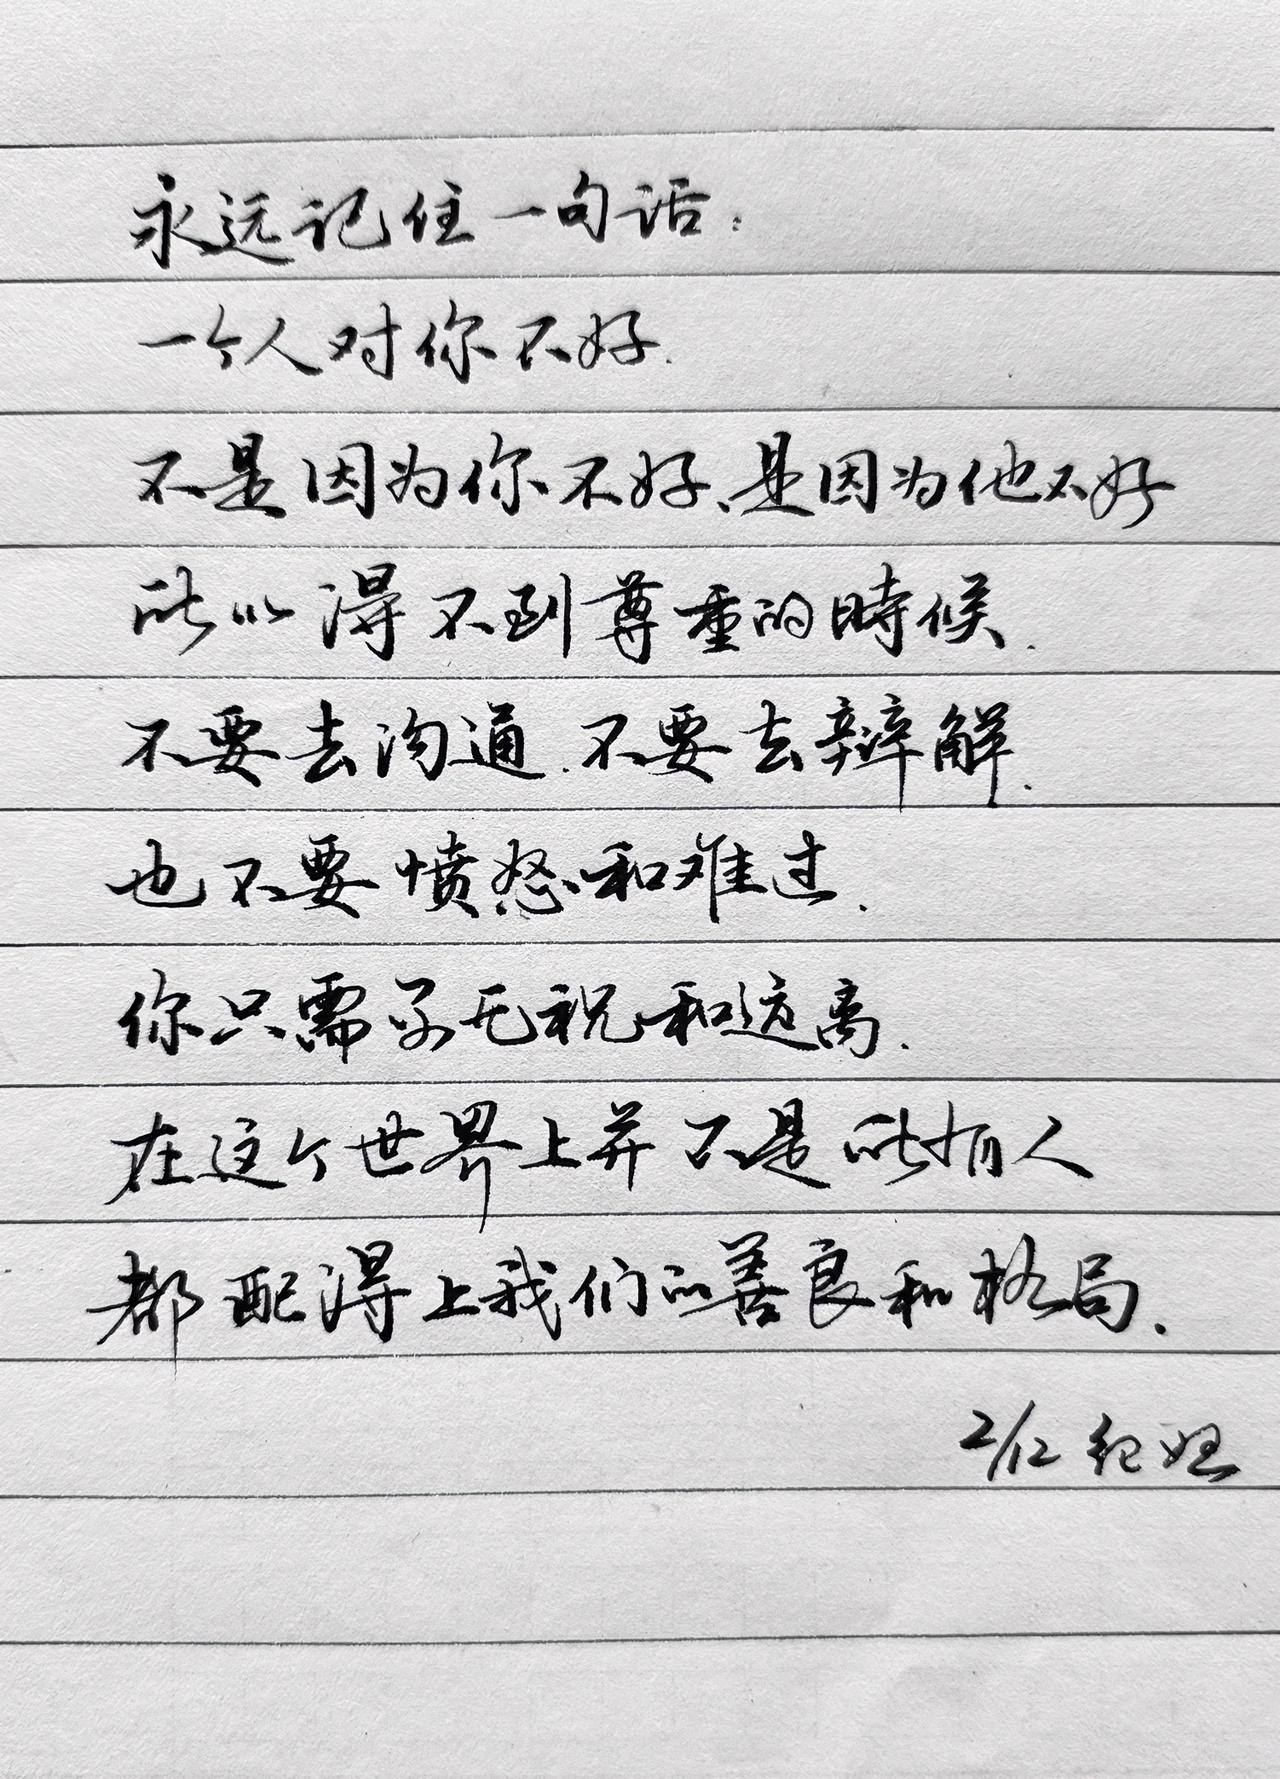 永远记住一句话：
一个人对你不好.
不是因为你不好、是因为他不好
所以得不到尊重的時候.
不要去沟通.不要去辩解.
也不要愤怒和难过.
你只需要无视和远离.
在这个世界上并不是所有人
都配得上我们的善良和格局.
2/12 纪妲